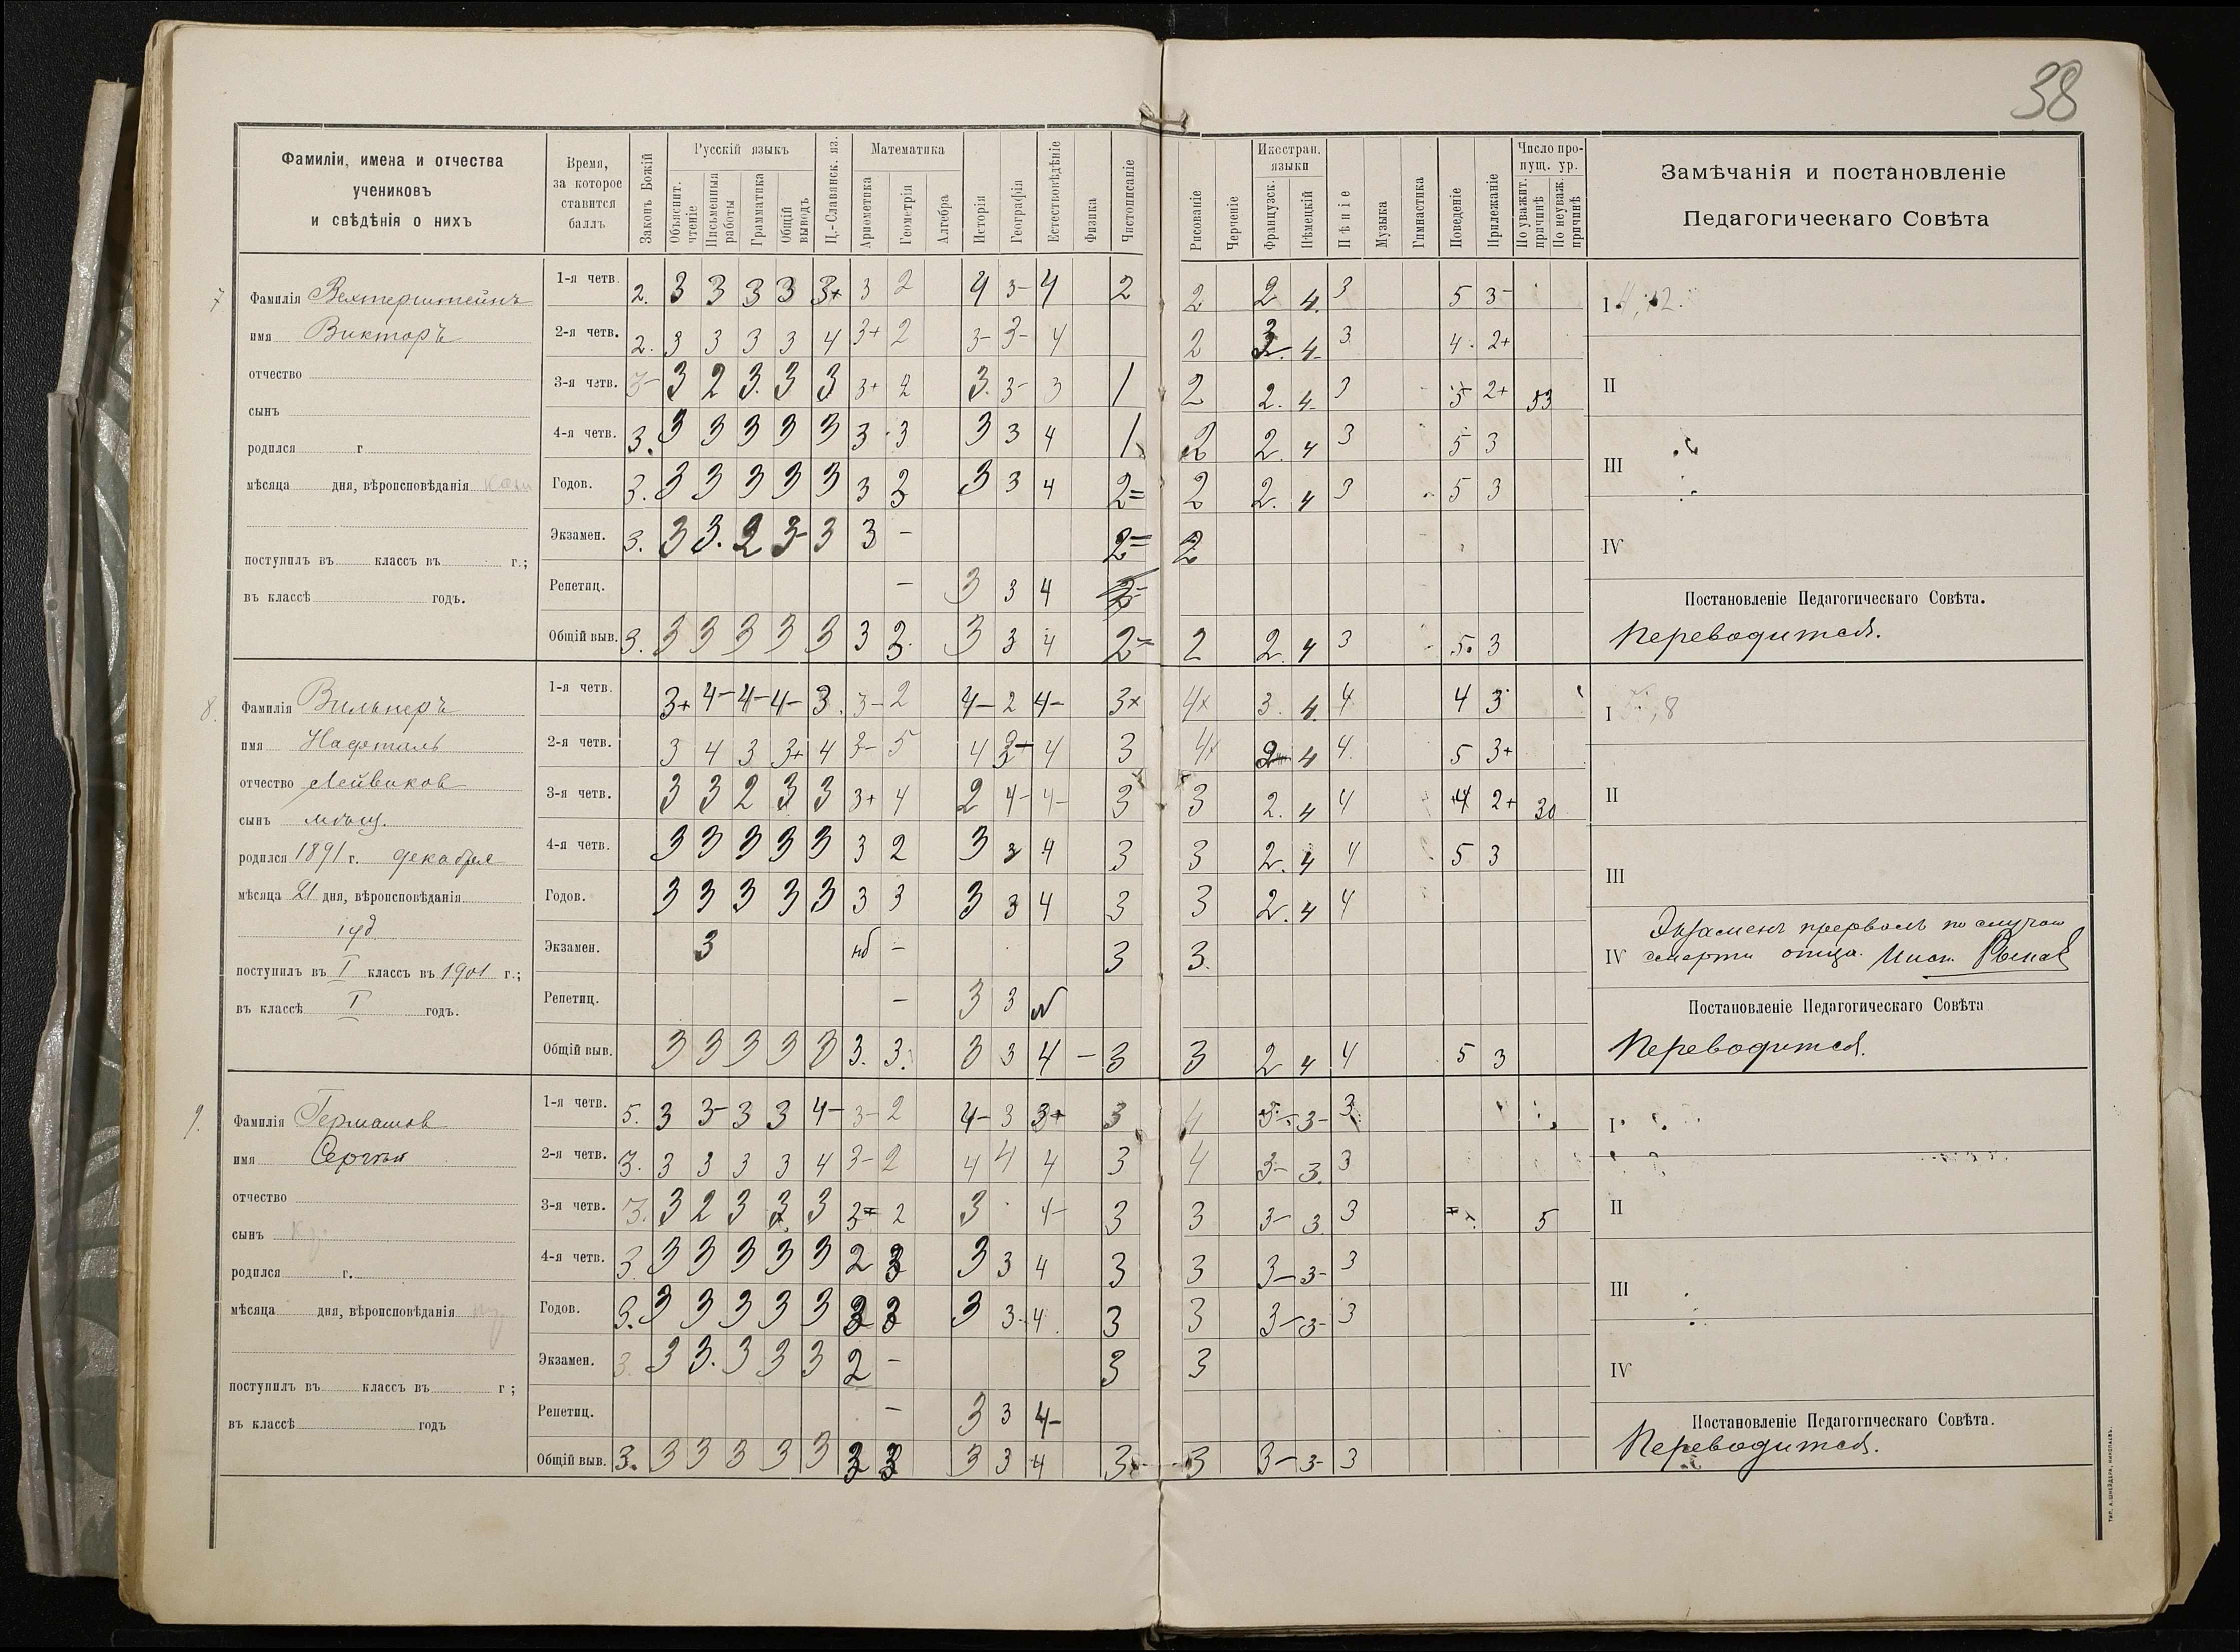 38
Фамиліи, имена и отчества
учениковъ
и свѣдѣнія о нихъ
Время,
за которое
ставится
баллъ
Законъ Божій
Русскій языкъ
Объяснит. чтеніе
Письменныя работы
Грамматика
Общій выводъ
Ц.-Славянск. яз.
Математика
Ариѳметика
Геометрія
Алгебра
Исторія
Географія
Естествовѣдѣніе
Физика
Чистописаніе
Рисованіе
Черченіе
Иностран. языки
Французск.
Нѣмецкій
Пѣніе
Музыка
Гимнастика
Поведеніе
Прилежаніе
Число пропущ. ур.
По уважит. причинѣ
По неуваж. причинѣ
Замѣчанія и постановленіе
Педагогическаго Совѣта
7
Фамилія Вехтерштейнъ
имя Викторъ
отчество
сынъ
родился г
мѣсяца дня, вѣроисповѣданія
поступилъ въ классъ въ г.;
въ классѣ годъ.
1-я четв. 2. 3 3 3 3 3+ 3 2 4 3- 4 2 2 2 4. 3 5 3-
2-я четв. 2. 3 3 3 3 4 3+ 2 3- 3- 4 2 3. 4- 3 4. 2+
3-я четв. 3- 3 2 3. 3 3 3+ 2 3. 3- 3 1 2 2. 4- 3 5 2+ 53
4-я четв. 3. 3 3 3 3 3 3 3 3 3 4 1 2 2. 4 3 5 3
Годов. 3. 3 3 3 3 3 3 3 3 3 4 2= 2 2. 4 3 5 3
Экзамен. 3. 3 3. 2 3- 3 3 - 2= 2
Репетиц. - 3 3 4 2-
Общій выв. 3. 3 3 3 3 3 3 3. 3 3 4 2= 2 2. 4 3 5. 3
I
II
III
IV
Постановленіе Педагогическаго Совѣта.
Переводится.
8.
Фамилія Вильнеръ
имя Нафталь
отчество Лейвиков
сынъ мѣщ.
родился 1891 г. декабря
мѣсяца 21 дня, вѣроисповѣданія
іуд
поступилъ въ I классъ въ 1901 г.;
въ классѣ I годъ.
1-я четв. 3+ 4- 4- 4- 3. 3- 2 4- 2 4- 3+ 4+ 3. 4. 4 4 3
2-я четв. 3 4 3 3+ 4 3- 5 4 3+ 4 3 4+ 2 4 4. 5 3+
3-я четв. 3 3 2 3 3 3+ 4 2 4- 4- 3 3 2. 4 4 4 2+ 30
4-я четв. 3 3 3 3 3 3 2 3 3 4 3 3 2. 4 4 5 3
Годов. 3 3 3 3 3 3 3 3 3 4 3 3 2. 4 4
Экзамен. 3 нб - 3 3.
Репетиц. - 3 3
Общій выв. 3 3 3 3 3 3. 3. 3 3 4 - 3 3 2 4 4 5 3
I
II
III
Экзаменъ прервалъ по случаю
IV смерти отца.
Постановленіе Педагогическаго Совѣта
Переводится.
9.
Фамилія Германов
имя Сергѣй
отчество
сынъ
родился г.
мѣсяца дня, вѣроисповѣданія
поступилъ въ классъ въ г;
въ классѣ годъ
1-я четв. 5. 3 3- 3 3 4- 3- 2 4- 3 3+ 3 4 3- 3- 3
2-я четв. 3. 3 3 3 3 4 3- 2 4 4 4 3 4 3- 3. 3
3-я четв. 3. 3 2 3 3 3 3= 2 3 4- 3 3 3- 3. 3 5
4-я четв. 3 3 3 3 3 3 2 3 3 3 4 3 3 3- 3- 3
Годов. 3. 3 3 3 3 3 3 3 3 3- 4. 3 3 3- 3- 3
Экзамен. 3 3 3. 3 3 3 2 - 3 3
Репетиц. - 3 3 4-
Общій выв. 3. 3 3 3 3 3 3 3 3 3 4 3 3 3- 3- 3
I
II
III
IV
Постановленіе Педагогическаго Совѣта.
Переводится.
ТИП. А. ШНЕЙДЕРА, НИКОЛАЕВЪ.